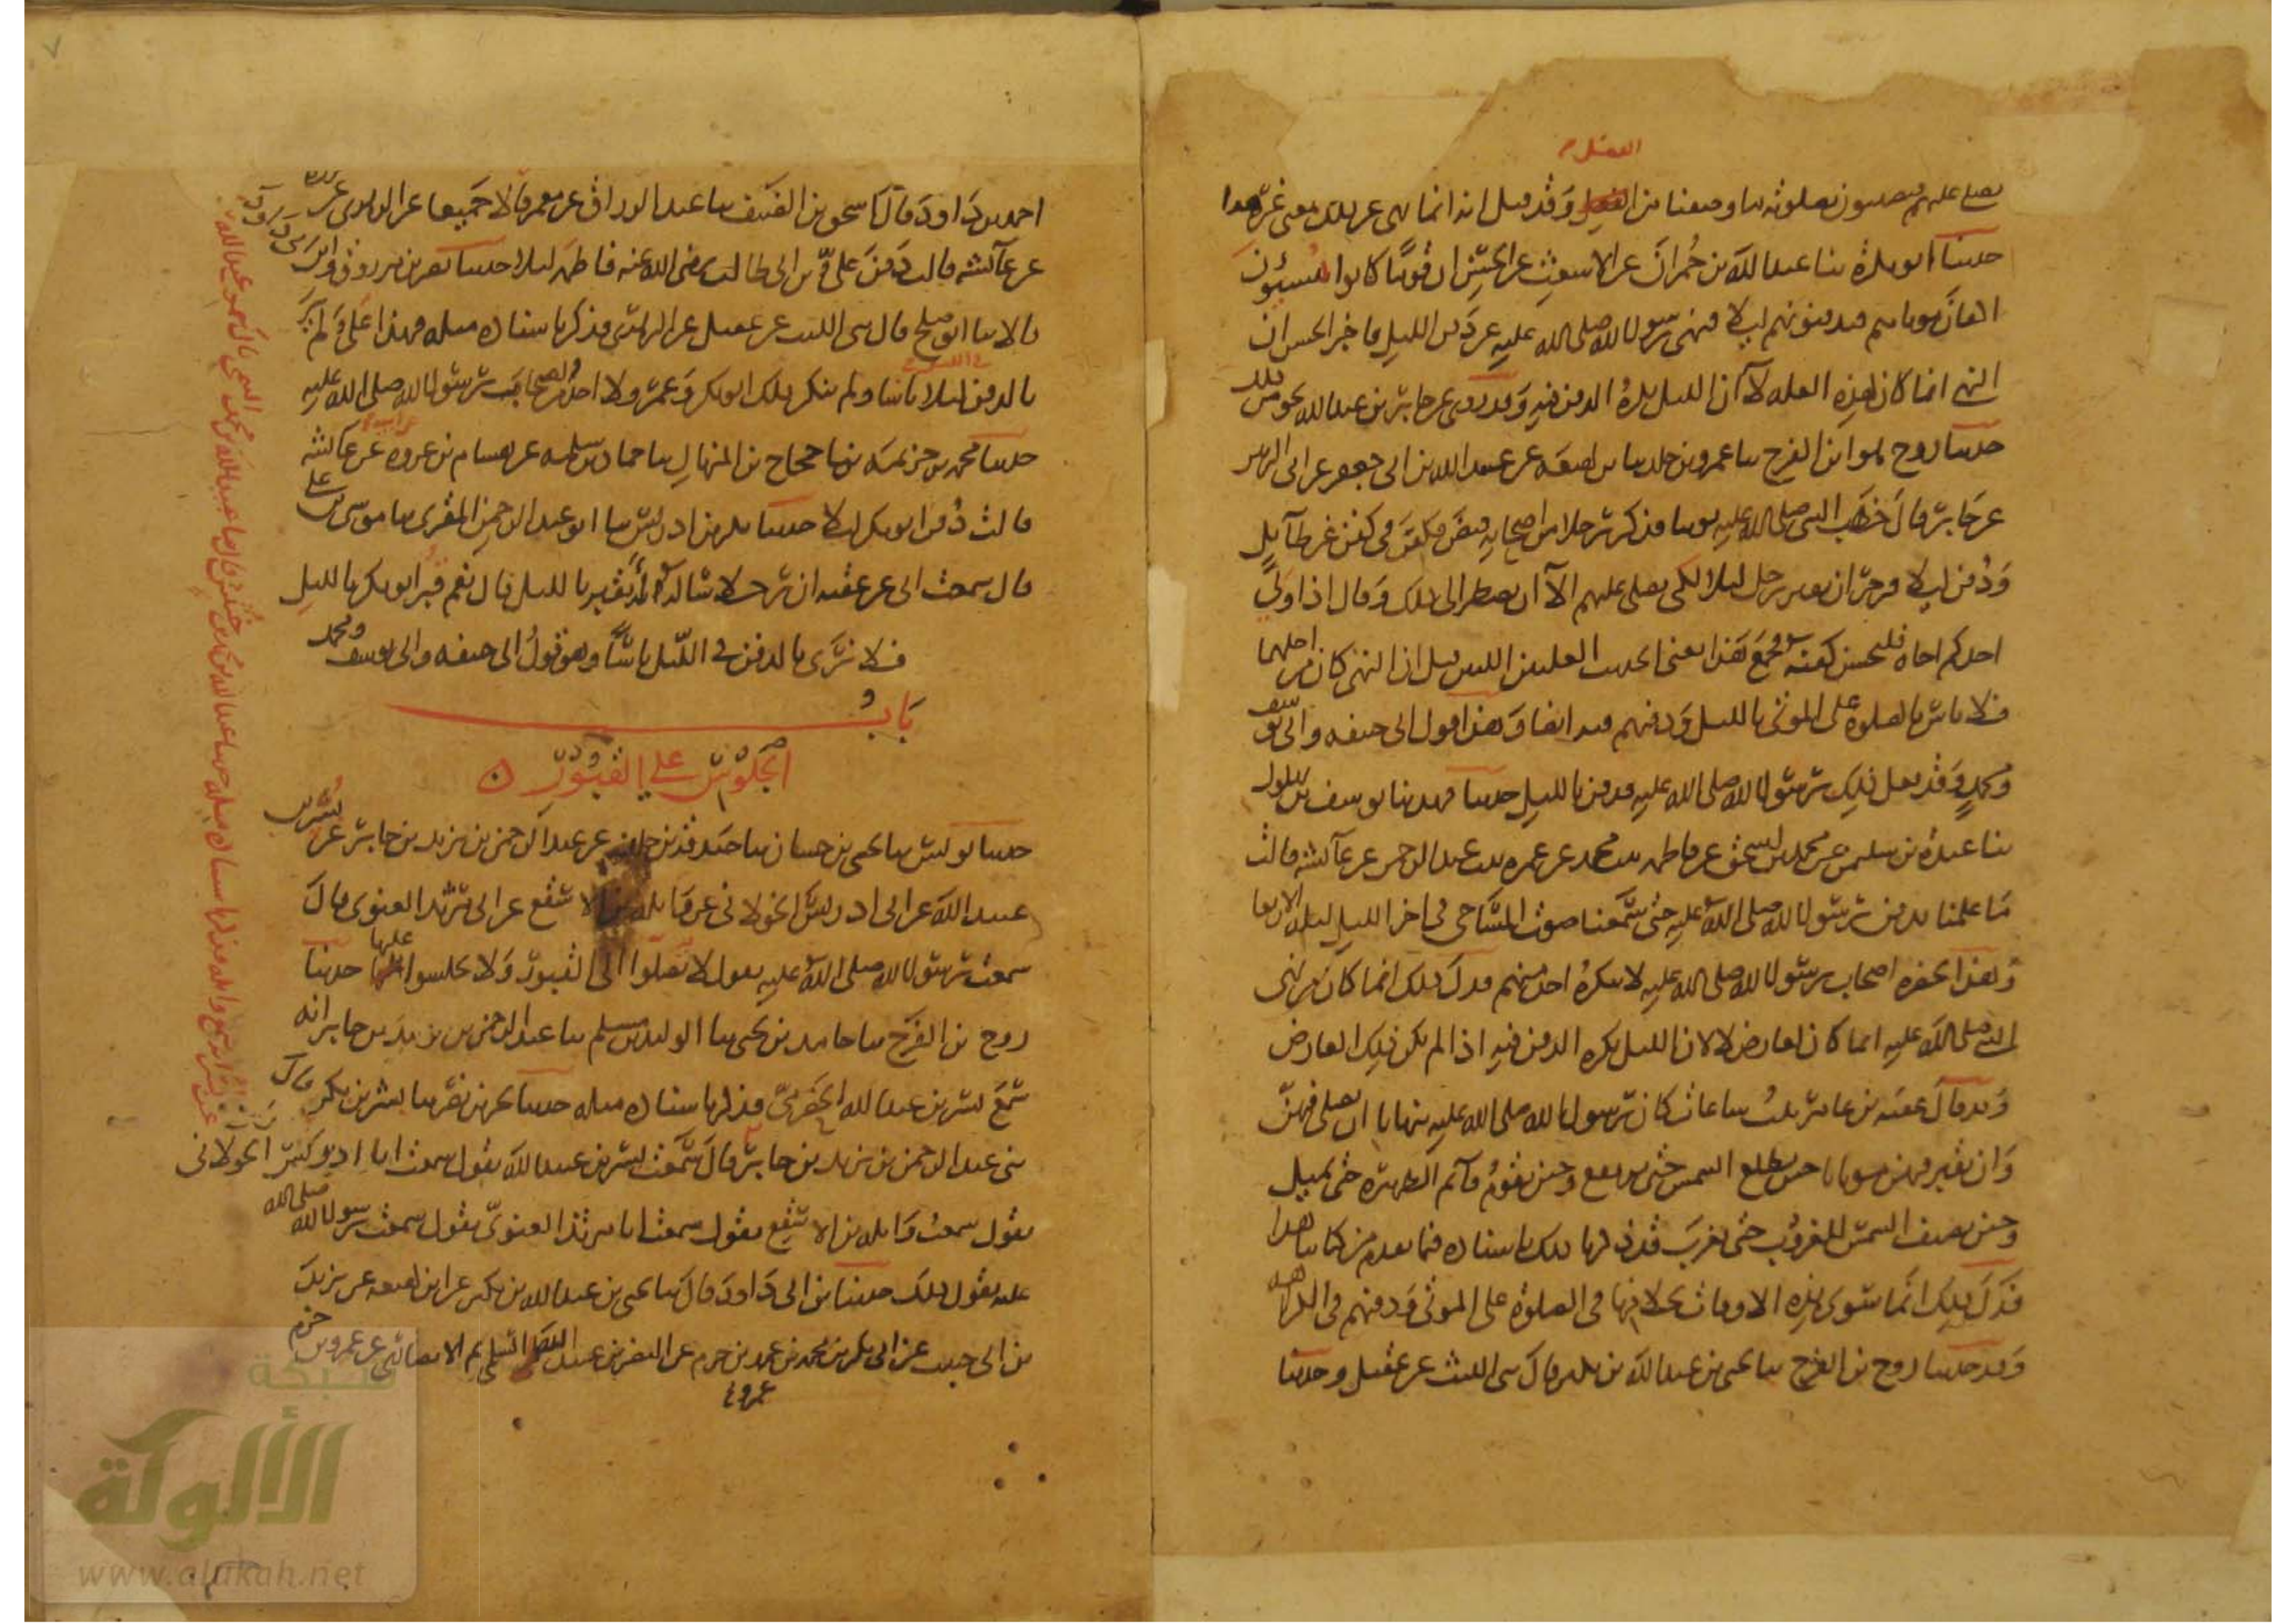 الفضل
يصلي عليهم فيصيبون بصلوته ما وصفنا من الفضل وقد قيل انه انما نهى عن ذلك لمعنى غير هذا
حدثنا ابو بكرة ثنا عبد الله بن حمران عن الاشعث عن الحسن ان قوما كانوا يسيؤن
اكفان موتاهم فيدفنونهم ليلا فنهى رسول الله صلى الله عليه عن دفن الليل فاخبر الحسن ان
النهي انما كان لهذه العلة لا ان الليل يكره الدفن فيه وقد روي عن جابر بن عبد الله نحو من ذلك
حدثنا روح هو ابن الفرج ثنا عمرو بن خالد ثنا بن لهيعة عن عبيد الله بن ابي جعفر عن ابي الزبير
عن جابر قال خطب النبي صلى الله عليه يوما فذكر رجلا من اصحابه قبض فكفن في كفن غير طائل
ودفن ليلا فزجر ان يقبر رجل ليلا لكي يصلى عليهم الا ان يضطر الى ذلك وقال اذا ولي
احدكم اخاه فليحسن كفنه فجمع هذا يعني الحديث العلتين اللتين قيل ان النهي كان من اجلهما
فلا باس بالصلوة على الموتى بالليل ودفنهم فيه ايضا وهذا قول ابي حنيفة وابي يوسف
ومحمد وقد فعل ذلك رسول الله صلى الله عليه فدفن بالليل حدثنا فهد ثنا يوسف بن بهلول
ثنا عبدة بن سليمن عن محمد بن اسحق عن فاطمة بنت محمد عن عمرة بنت عبد الرحمن عن عائشة قالت
ما علمنا بدفن رسول الله صلى الله عليه حتى سمعنا صوت المساحي في اخر الليل ليلة الاربعا
وهذا بحضرة اصحاب رسول الله صلى الله عليه لا ينكره احد منهم فدل ذلك انما كان من نهي
النبي صلى الله عليه انما كان لعارض لا لان الليل يكره الدفن فيه اذا لم يكن ذلك العارض
وقد قال عقبة بن عامر ثلث ساعات كان رسول الله صلى الله عليه ينهانا ان نصلي فيهن
وان نقبر فيهن موتانا حين تطلع الشمس حتى ترتفع وحين يقوم قائم الظهيرة حتى تميل
وحين تضيف الشمس للغروب حتى تغرب قد ذكرنا ذلك باسناده فيما تقدم من كتابنا هذا
فدل ذلك انما سوى هذه الاوقات بخلافها في الصلوة على الموتى ودفنهم في الكراهة
وقد حدثنا روح بن الفرج ثنا يحيى بن عبد الله بن بكير قال ثني الليث عن عقيل وحدثنا
احمد بن داود قال ثنا اسحق بن الضيف ثنا عبد الرزاق عن معمر قالا جميعا عن الزهري عن عروة
عن عائشة قالت دفن علي بن ابي طالب رضي الله عنه فاطمة ليلا حدثنا نصر بن مرزوق وابن ابي داود
قالا ثنا ابو صلح قال ثني الليث عن عقيل عن الزهري فذكر باسناده مثله فهذا علي لم ير
بالدفن ليلا باسا ولم ينكر ذلك ابو بكر وعمر ولا احد من اصحاب رسول الله صلى الله عليه
حدثنا محمد بن خزيمة ثنا حجاج بن المنهال ثنا حماد بن سلمة عن هشام بن عروة عن عائشة
قالت دفن ابو بكر ليلا حدثنا بكر بن ادريس ثنا ابو عبد الرحمن المقرئ ثنا موسى بن علي
قال سمعت ابي عن عقبة ان رجلا ساله أنقبر بالليل قال نعم قبر ابو بكر بالليل
فلا نرى بالدفن في الليل باسا وهو قول ابي حنيفة وابي يوسف ومحمد
باب
الجلوس على القبور
حدثنا يونس ثنا يحيى بن حسان ثنا صدقة بن خالد عن عبد الرحمن بن يزيد بن جابر عن بسر بن
عبيد الله عن ابي ادريس الخولاني عن واثلة بن الاسقع عن ابي مرثد الغنوي قال
سمعت رسول الله صلى الله عليه يقول لا تصلوا الى القبور ولا تجلسوا عليها حدثنا
روح بن الفرج ثنا حامد بن يحيى ثنا الوليد بن مسلم ثنا عبد الرحمن بن يزيد بن جابر انه
سمع بسر بن عبيد الله الحضرمي فذكر باسناده مثله حدثنا بحر بن نصر ثنا بشر بن بكر قال
ثني عبد الرحمن بن يزيد بن جابر قال سمعت بسر بن عبيد الله يقول سمعت ابا ادريس الخولاني
يقول سمعت واثلة بن الاسقع يقول سمعت ابا مرثد الغنوي يقول سمعت رسول الله صلى الله
عليه يقول ذلك حدثنا بن ابي داود قال ثنا يحيى بن عبد الله بن بكير عن ابن لهيعة عن يزيد
بن ابي حبيب عن ابي بكر بن محمد بن عمرو بن حزم عن النضر بن عبد الله السلمي ثم الانصاري عن عمرو بن حزم
شبكة
الألوكة
www.alukah.net